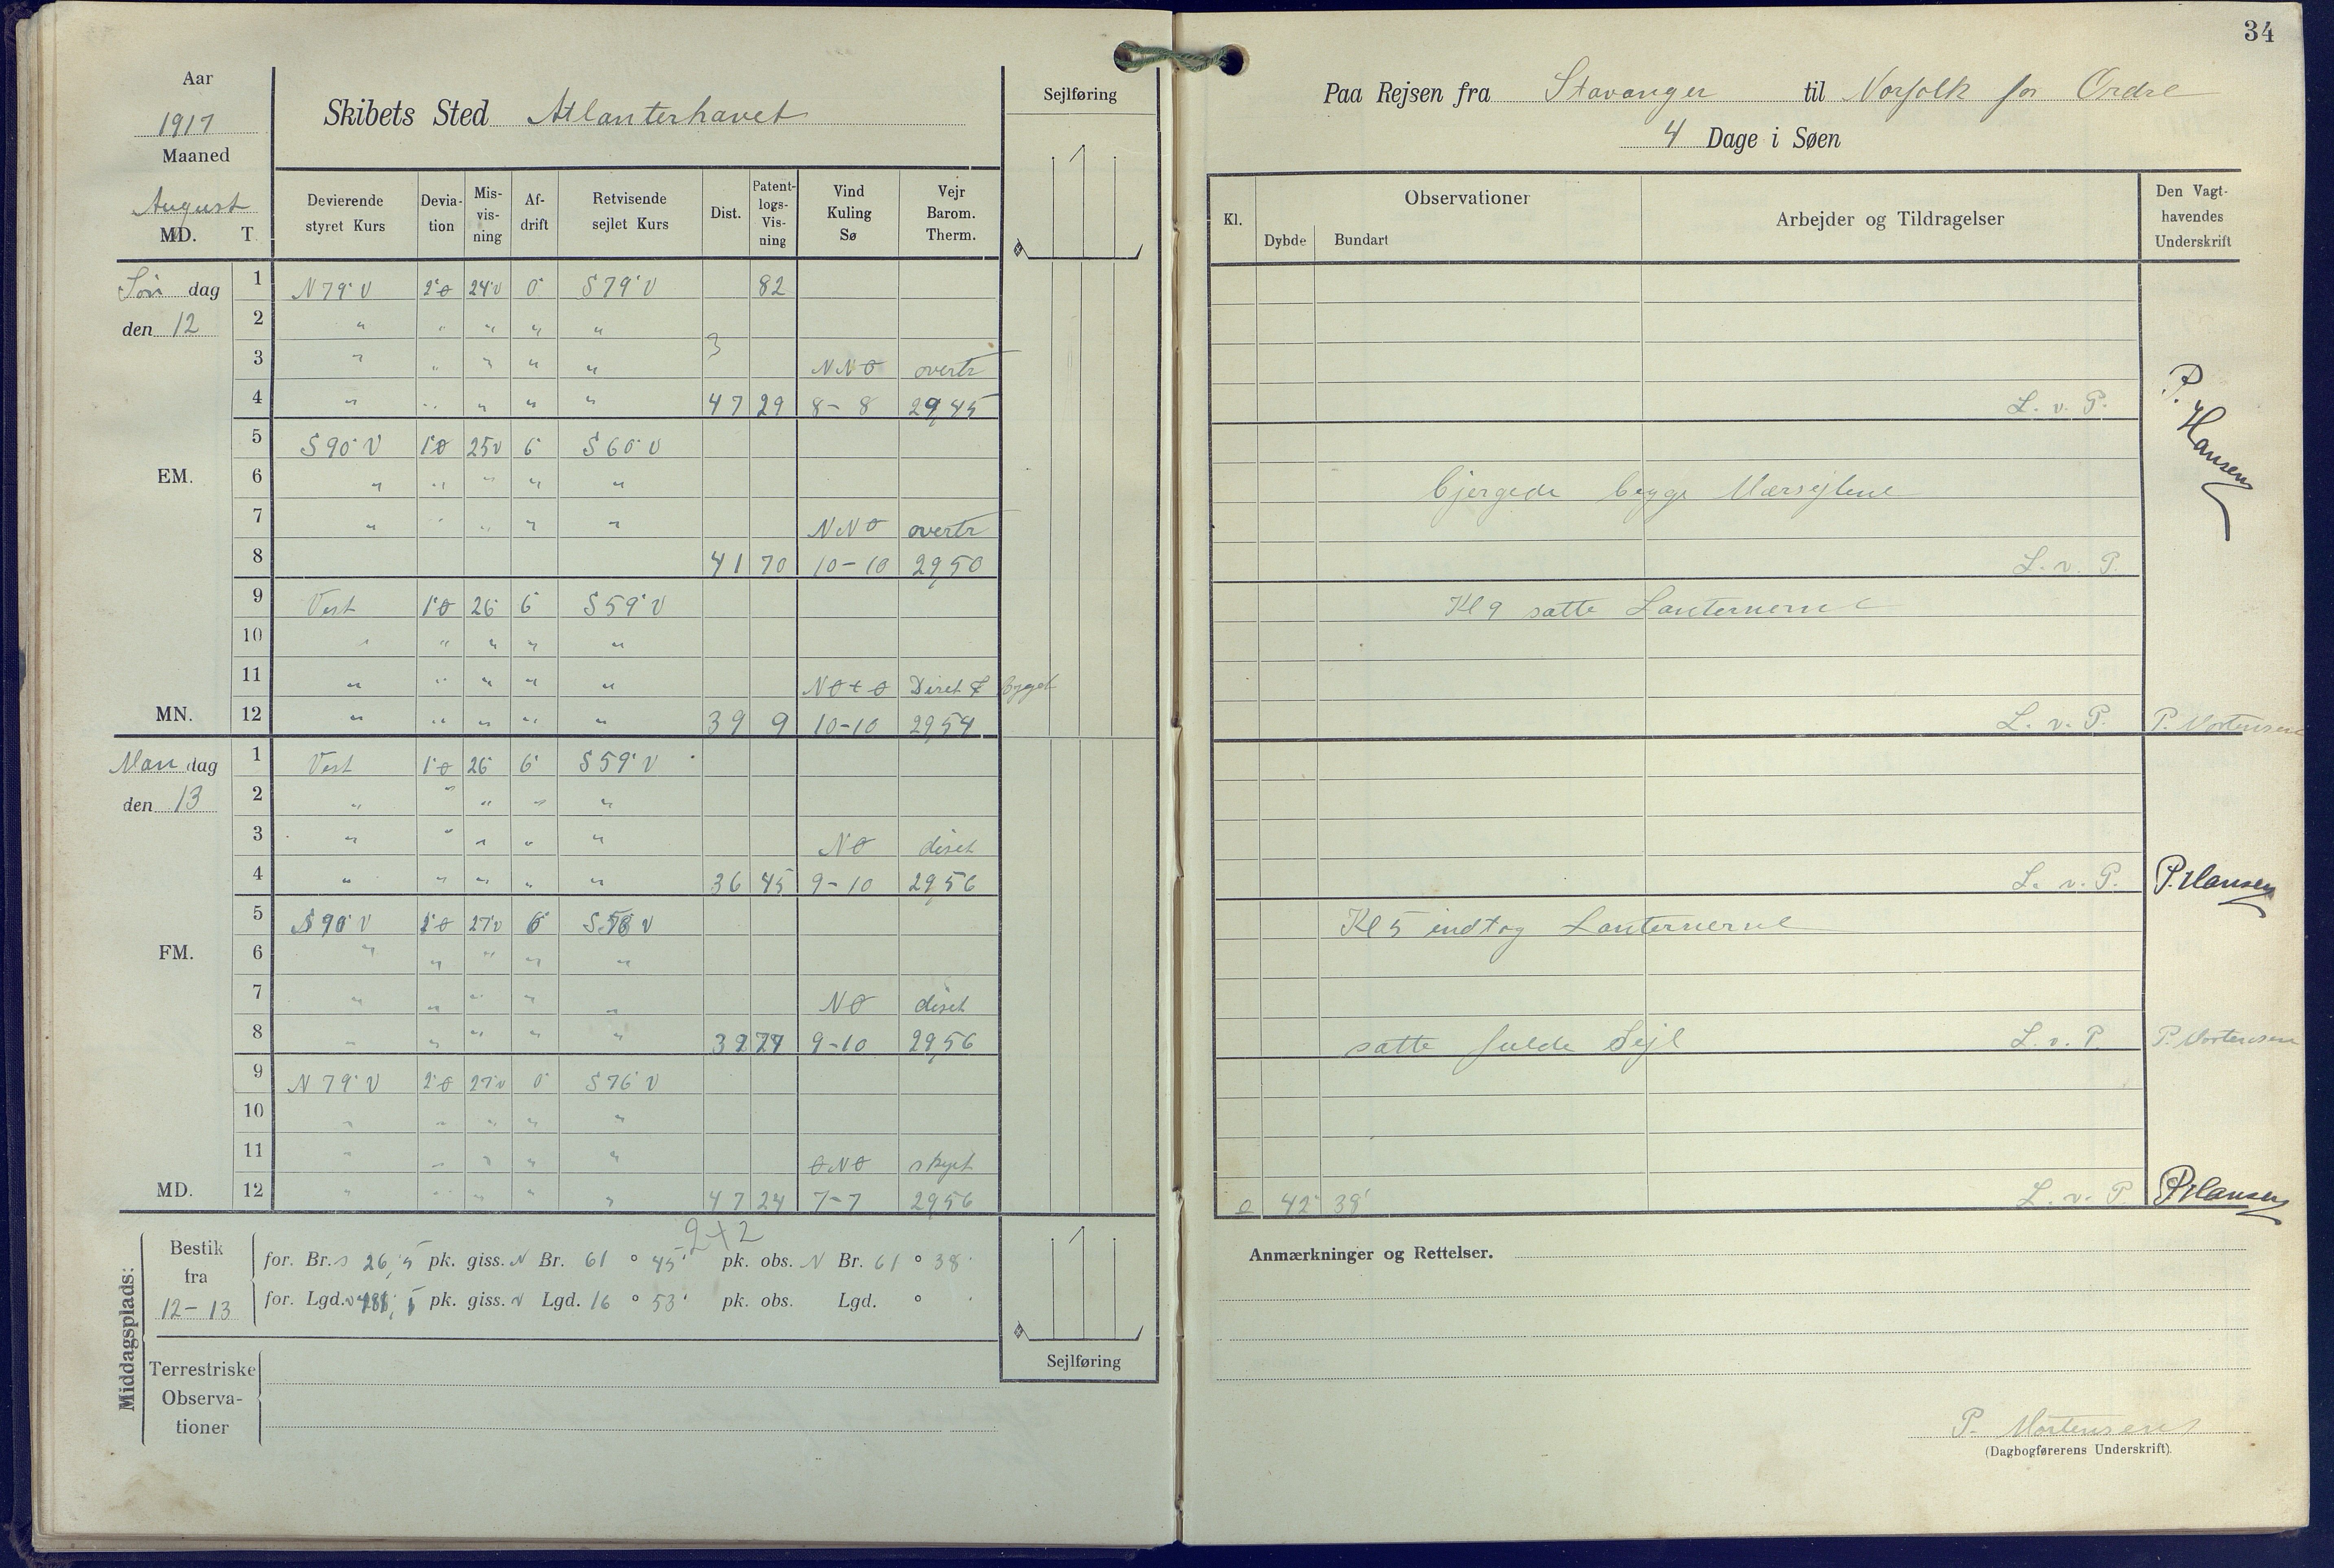 34
Aar
1917
Maaned
August
MD. T.
Skibets Sted Atlanterhavet
Sejlføring
Paa Rejsen fra Stavanger til Norfolk for Ordre
4 Dage i Søen
Devierende styret Kurs
Devia-tion
Mis-vis-ning
Af-drift
Retvisende sejlet Kurs
Dist.
Patent-logs-Vis-ning
Vind Kuling Sø
Vejr Barom. Therm.
Kl.
Observationer
Dybde Bundart
Arbejder og Tildragelser
Den Vagt-havendes Underskrift
Søn dag 1 N 79° V 2°Ø 24°V 0° S 79° V 82
den 12 2 " " " " "
3 " " " " " 3 NNØ overtr
4 " " " " " 47 29 8 - 8 29,45 L. v. P. P. Hansen
5 S 90° V 1°Ø 25V 6° S 60° V
EM. 6 " " " " " bjergede begge Mærsejlene
7 " " " " " NNØ overtr
8 41 70 10 - 10 29,50 L. v. P.
9 Vest 1°Ø 26° 6° S 59° V Kl 9 satte Lanternerne
10 " " " " "
11 " " " " " NØtØ Diset & byget
MN. 12 " " " " " 39 9 10-10 29,54 L. v. P. P. Mortensen
Man dag 1 Vest 1°Ø 26° 6° S 59° V
den 13 2 " " " " "
3 " " " " " NØ diset
4 " " " " " 36 45 9 - 10 29,56 L. v. P. P. Hansen
5 S 90° V 27V 6° S 58 V Kl 5 indtog Lanternerne
FM. 6 " " " " "
7 " " " " " NØ diset
8 " " " " " 9-10 29,56 satte fulde Sejl L. v. P. P. Mortensen
9 N 79° V 2°Ø 27°V 0° S 76° V
10 " " " " "
11 " " " " " ØNØ skyet
MD. 12 " " " " " 47 24 7 - 7 29,56 42° 38' L. v. P. P. Hansen
242
Middagsplads:
Bestik fra 12 - 13
for. Br. s 26,5 pk. giss. N Br. 61 ° 45' pk. obs. N Br. 61 ° 38'
for. Lgd. V pk. giss. Lgd. 16 ° 53' pk. obs. Lgd. ° '
Terrestriske Observa-tioner
Sejlføring
Anmærkninger og Rettelser.
P. Mortensen
(Dagbogførerens Underskrift).